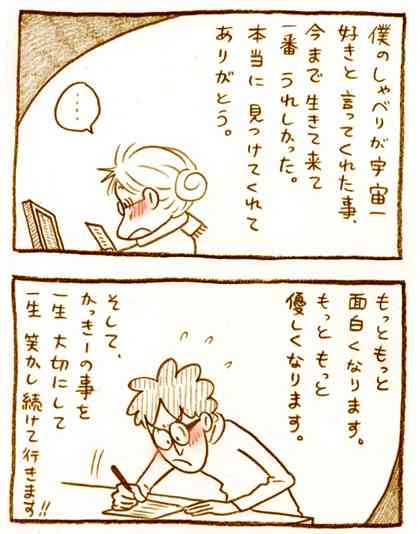 僕のしゃべりが宇宙一
好きと言ってくれた事、
今まで生きて来て
一番うれしかった。
本当に見つけてくれて
ありがとう。
……
もっともっと
面白くなります。
もっともっと
優しくなります。
そして、
かっきーの事を
一生大切にして
一生笑かし続けて行きます!!